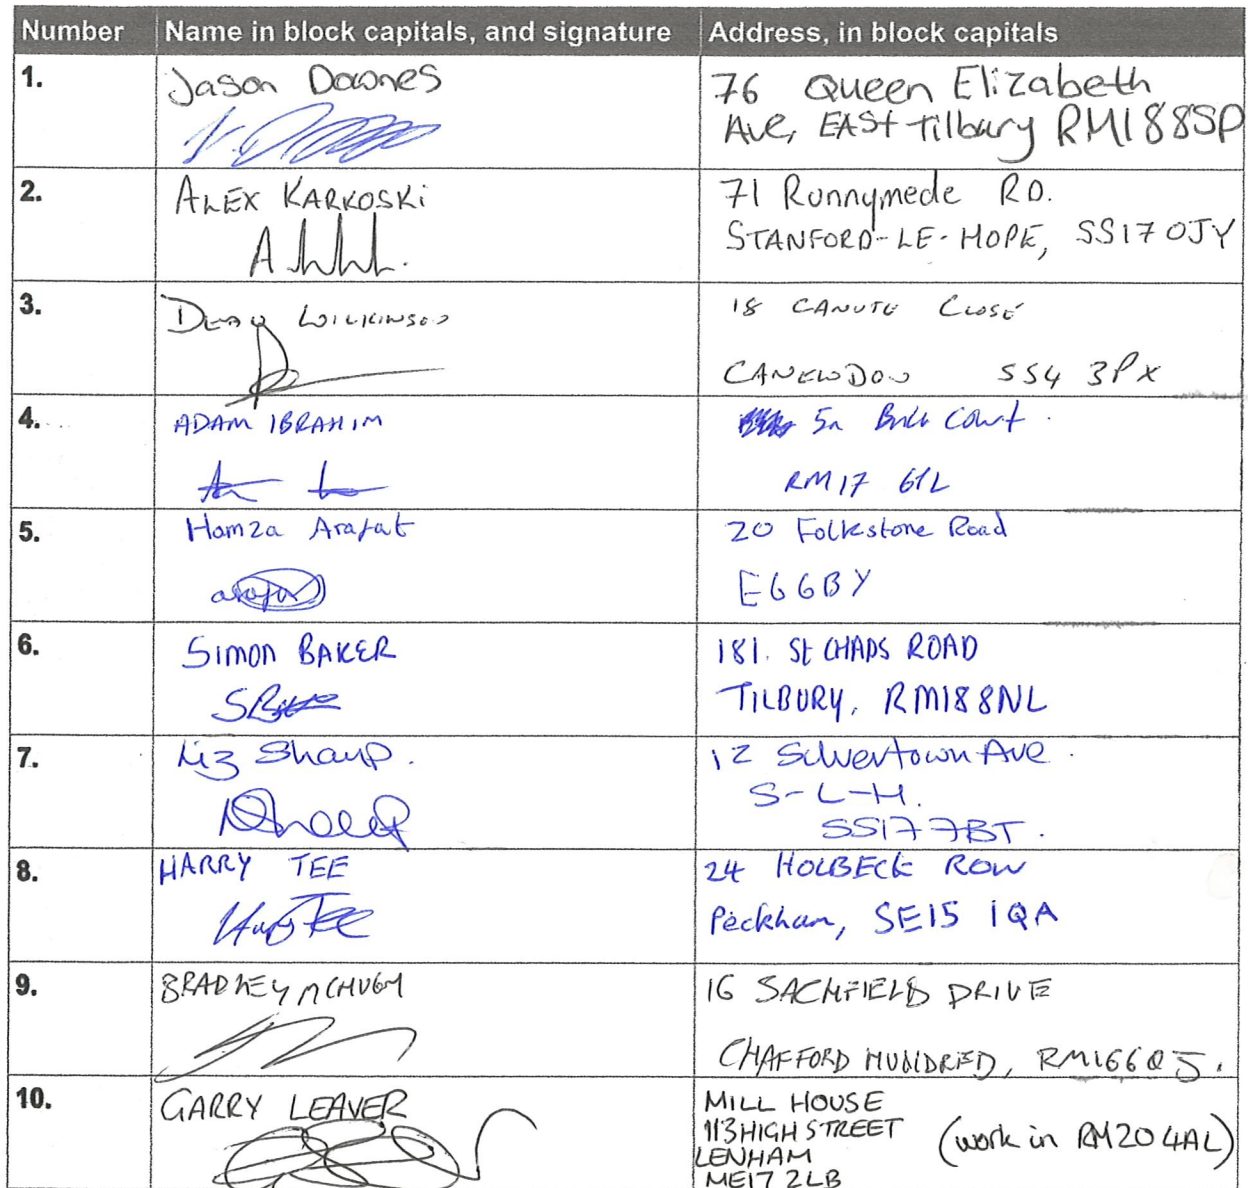 Number Name in block capitals, and signature Address, in block capitals
1. Jason Downes 76 Queen Elizabeth
Ave, EASt Tilbury RM188SP
2. ALEX KARKOSKi 71 Runnymede RD.
STANFORD-LE-HOPE, SS17 0JY
3. DEAN WILKINSON 18 CANUTE CLOSE
CANEWDON SS4 3PX
4. ADAM IBRAHIM 5a Court.
RM17
5. Hamza Arafat 20 Folkstone Road
E66BY
6. SIMON BAKER 181. St CHADS ROAD
TILBURY, RM188NL
7. Liz Sharp. 12 Silvertown Ave.
S-L-H.
SS17 7BT.
8. HARRY TEE 24 HOLBECK ROW
Peckham, SE15 1QA
9. BRADLEY MCHUGH 16 DRIVE
CHAFFORD HUNDRED, RM166QJ.
10. GARRY LEAVER MILL HOUSE
113 HIGH STREET (work in RM20 4AL)
LENHAM
ME17 2LB